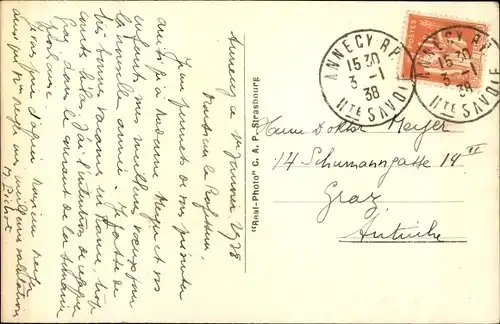 Annecy 1er Janvier 1938
Monsieur le Professeur,
Je me permets de vous présenter
ainsi qu'à Madame Meyer et vos
enfants mes meilleurs vœux pour
la nouvelle année. Je passe de
très bonnes vacances en France, trop
courtes hélas. J'ai l'intention de
Graz dans le courant de la semaine
prochaine.
Je vous prie d'agréer Monsieur Meyer
ainsi que mes meilleures salutations
"Real-Photo" C. A. P. Strasbourg
ANNECY R.P.
15 30
3 -1
38
HTE SAVOIE
ANNECY R.P.
15 30
3 -1
38
HTE SAVOIE
POSTES
Herrn Doktor Meyer
14 Schumanngasse 14 III
Graz
Autriche